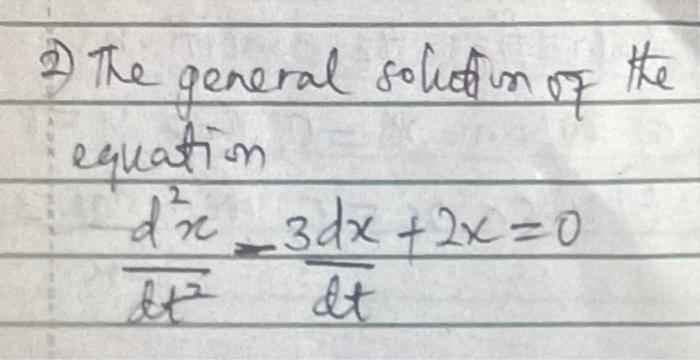 2) The general solution of the
equation
d²x/dt² - 3dx/dt + 2x = 0